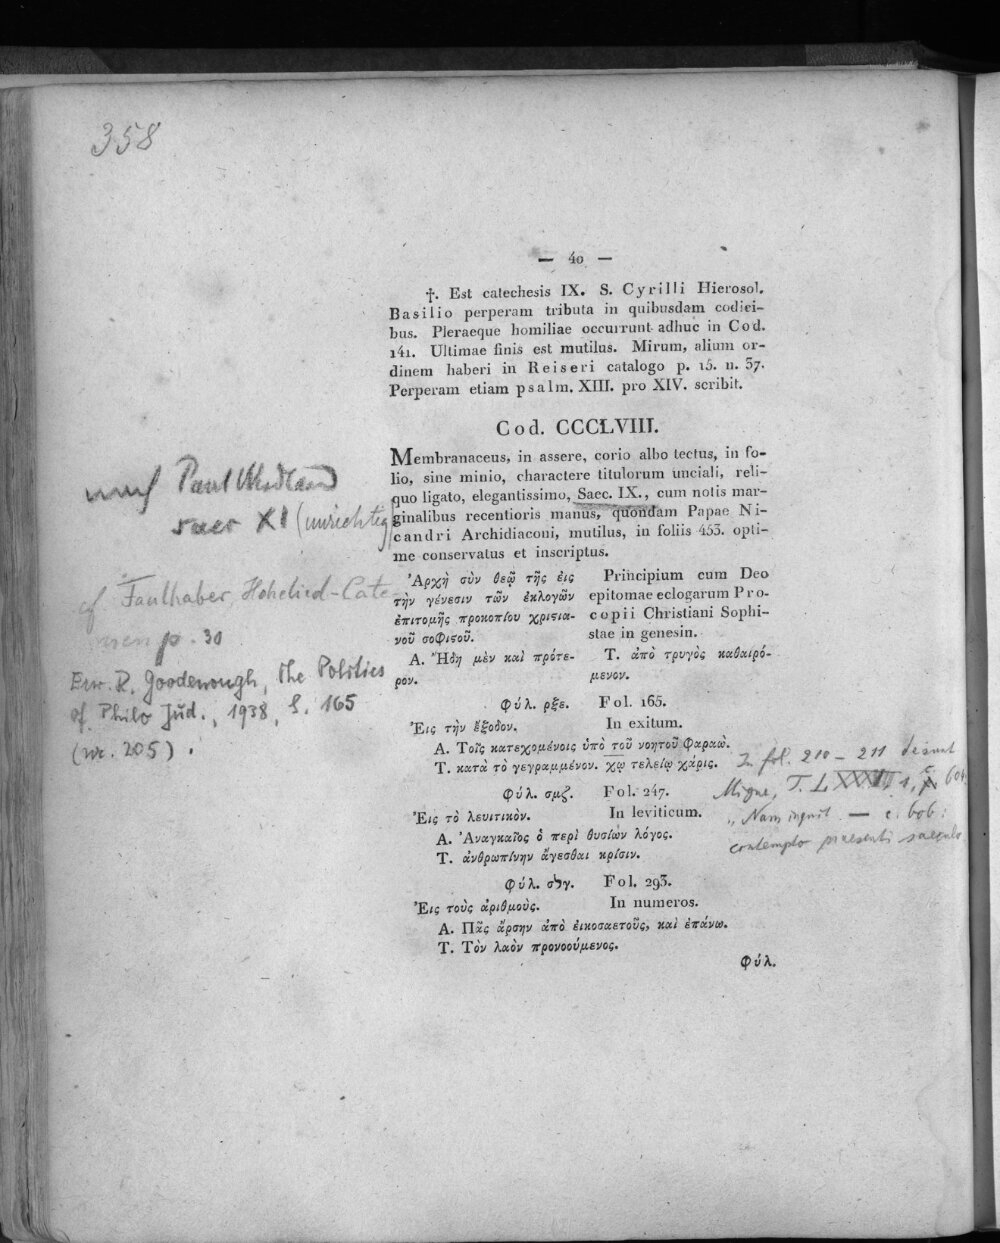 358
— 40 —
†. Est catechesis IX. S. Cyrilli Hierosol.
Basilio perperam tributa in quibusdam codici-
bus. Pleraeque homiliae occurrunt adhuc in Cod.
141. Ultimae finis est mutilus. Mirum, alium or-
dinem haberi in Reiseri catalogo p. 15. n. 37.
Perperam etiam psalm. XIII. pro XIV. scribit.
Cod. CCCLVIII.
Membranaceus, in assere, corio albo tectus, in fo-
lio, sine minio, charactere titulorum unciali, reli-
quo ligato, elegantissimo, Saec. IX., cum notis mar-
ginalibus recentioris manus, quondam Papae Ni-
candri Archidiaconi, mutilus, in foliis 453. opti-
me conservatus et inscriptus.
Paul
saec XI (unrichtig)
cf Faulhaber, Hohelied-Cate-
nen p. 30
Erw. R. Goodenough, the Politics
of Philo Jud., 1938, S. 165
(nr. 205).
Ἀρχὴ σὺν θεῷ τῆς εἰς
τὴν γένεσιν τῶν ἐκλογῶν
ἐπιτομῆς προκοπίου χριϛια-
νοῦ σοφιϛοῦ.
Principium cum Deo
epitomae eclogarum Pro-
copii Christiani Sophi-
stae in genesin.
Α. Ἤδη μὲν καὶ πρότε-
ρον.
Τ. ἀπὸ τρυγὸς καθαιρό-
μενον.
Φύλ. ρξε. Fol. 165.
Ἐις τὴν ἔξοδον. In exitum.
Α. Τοῖς κατεχομένοις ὑπὸ τοῦ νοητοῦ Φαραώ.
Τ. κατὰ τὸ γεγραμμένον. χῳ τελείῳ χάρις.
Φύλ. σμζ. Fol. 247.
Ἐις τὸ λευιτικὸν. In leviticum.
Α. Ἀναγκαῖος ὁ περὶ θυσιῶν λόγος.
Τ. ἀνθρωπίνην ἄγεσθαι κρίσιν.
Φύλ. Fol. 293.
Ἐις τοὺς ἀριθμοὺς. In numeros.
Α. Πᾶς ἄρσην ἀπὸ ἐικοσαετοῦς, καὶ ἐπάνω.
Τ. Τὸν λαὸν προνοούμενος.
Φύλ.
fol. 210 – 211 desunt
Migne, T. 1, c. 604
„Nam inquit — c. 606:
contemplo praesenti saeculo